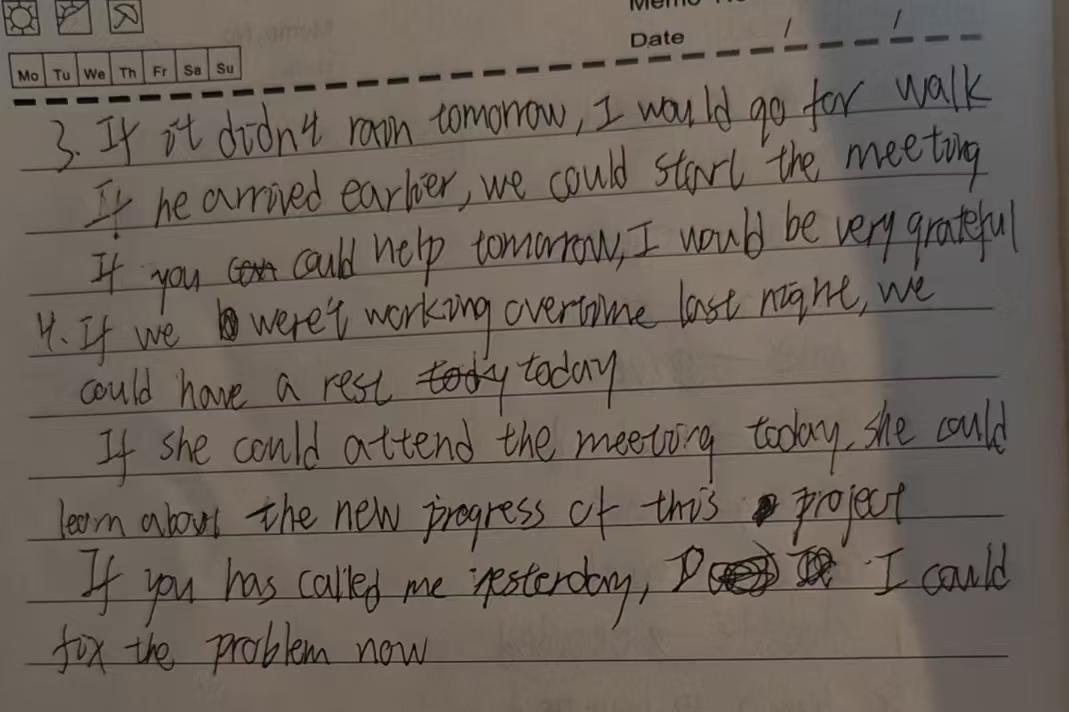 Memo No
Date / /
Mo Tu We Th Fr Sa Su
3. If it didn't rain tomorrow, I would go for walk
If he arrived earlier, we could start the meeting
If you could help tomorrow, I would be very grateful
4. If we weret working overtime last night, we
could have a rest tody today
If she could attend the meeting today, she could
learn about the new progress of this project
If you has called me yesterday, I could
fix the problem now